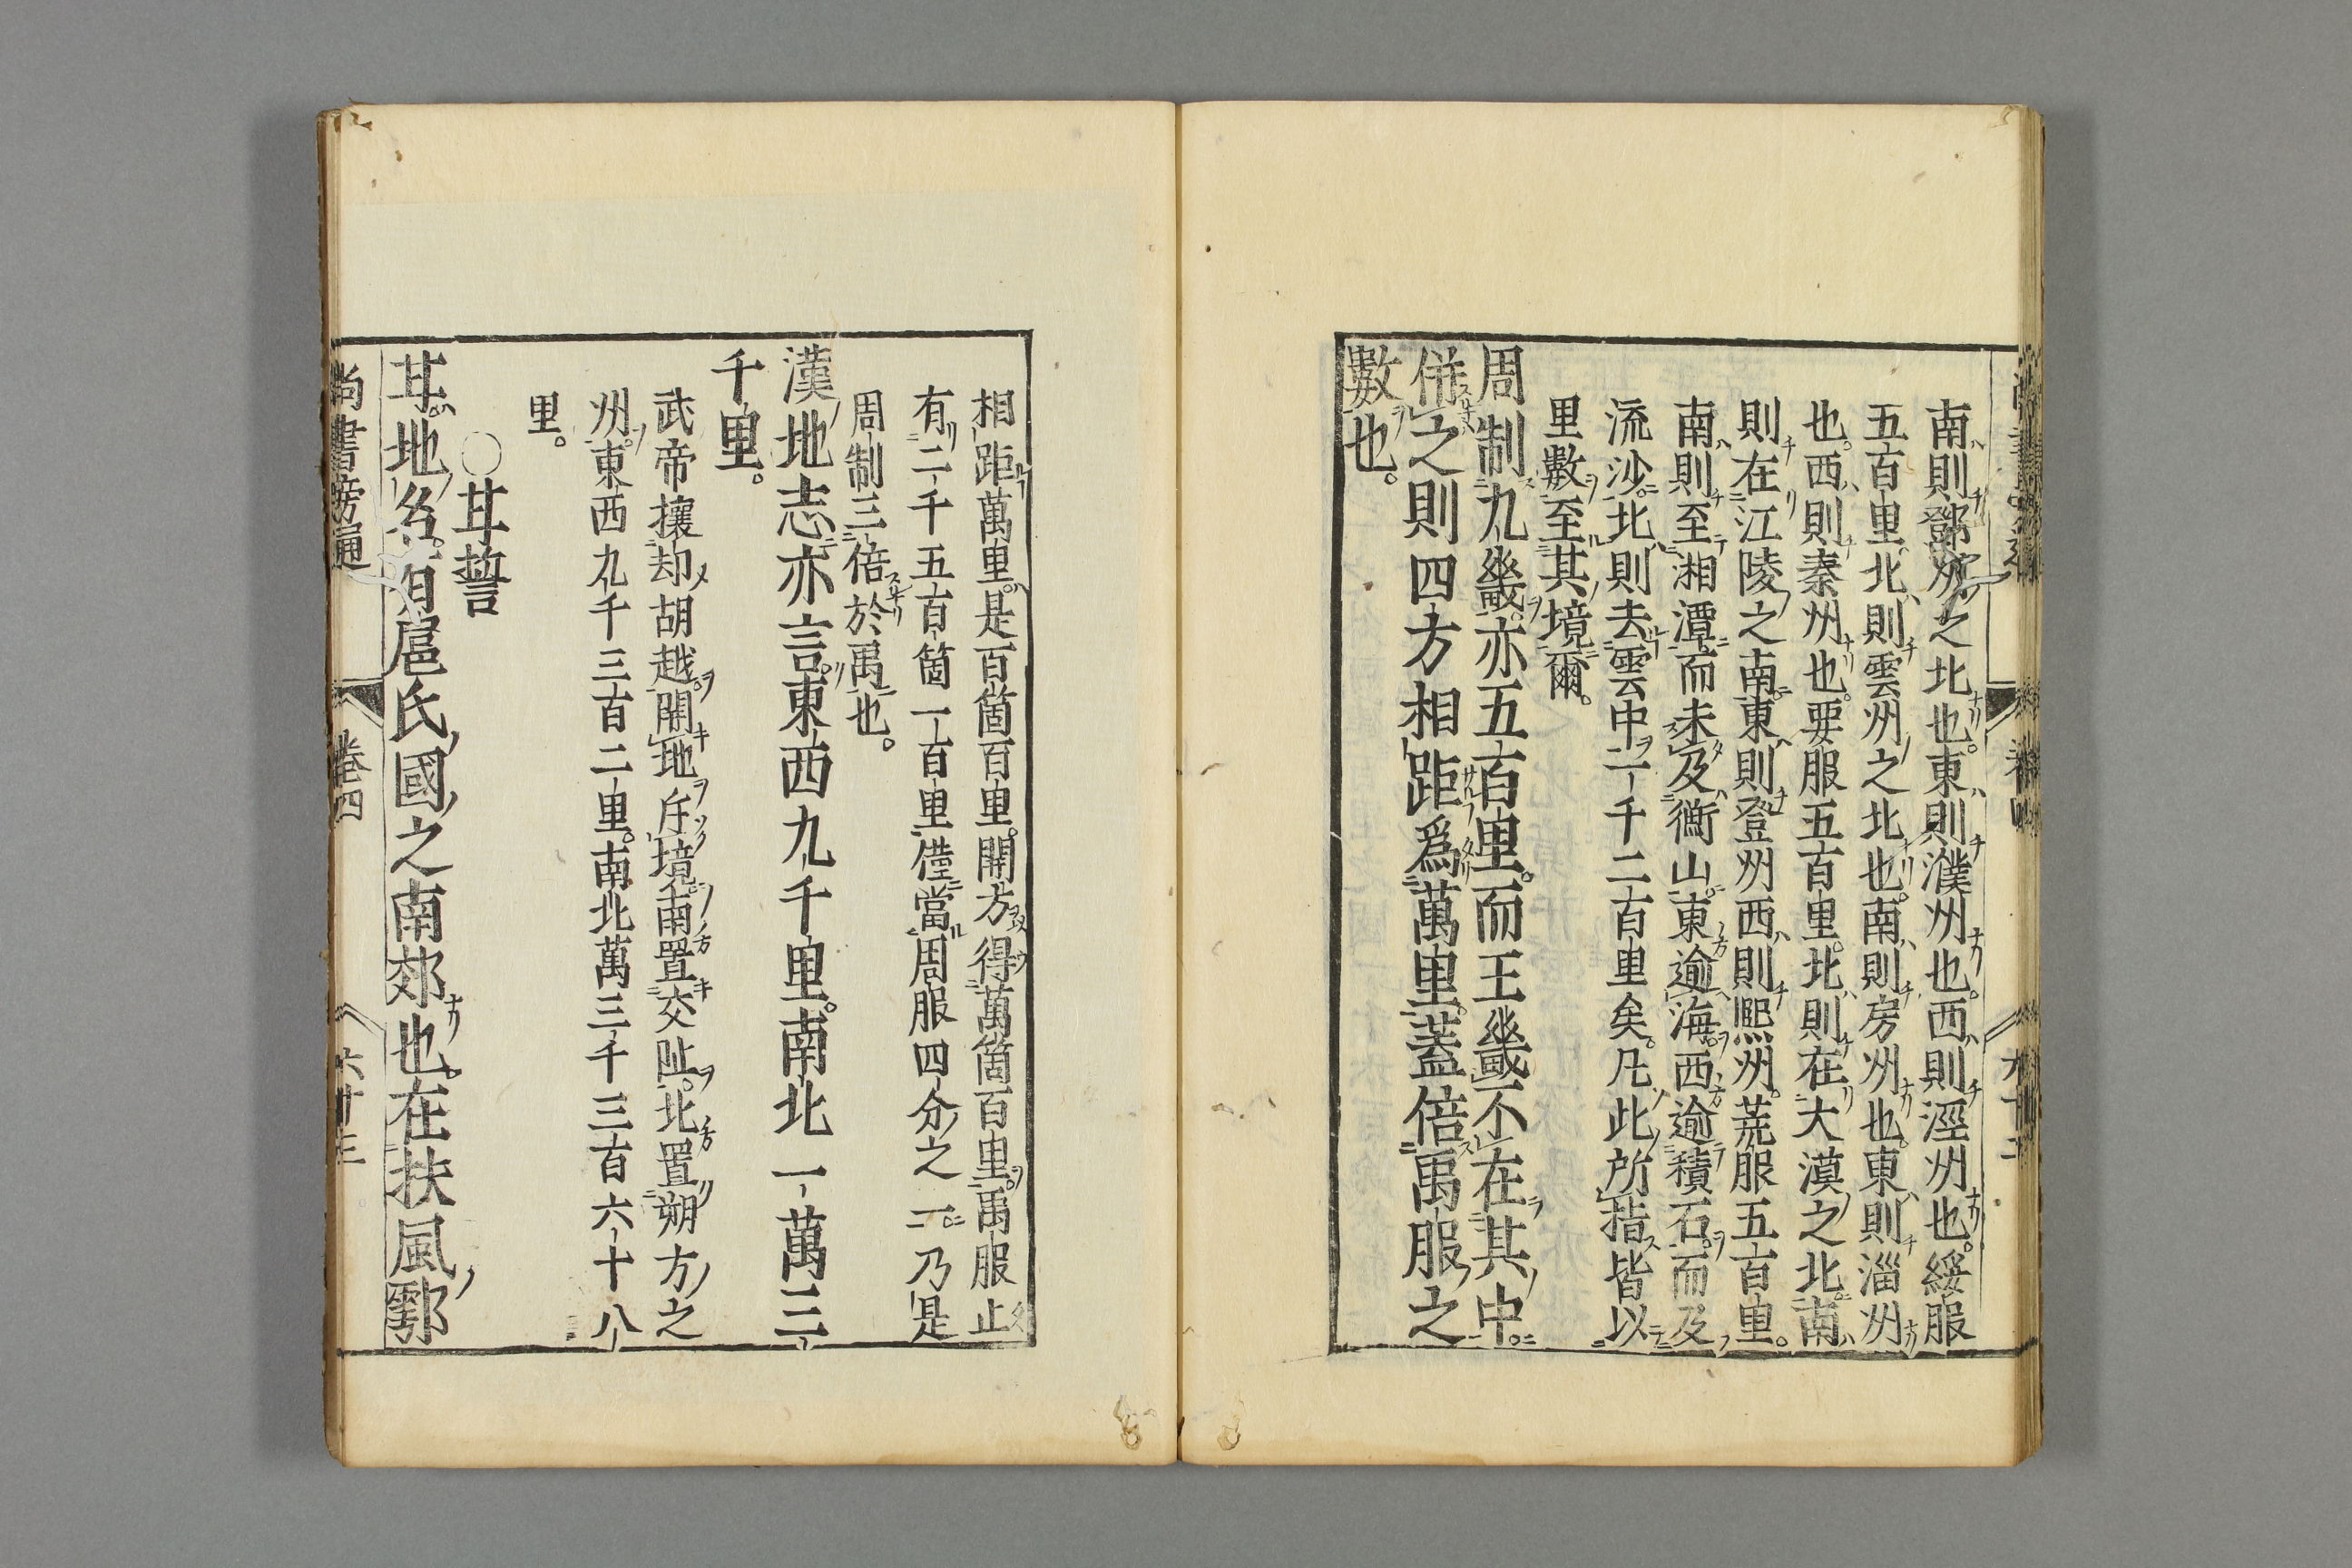 南則鄧州之北也。東則濮州也。西則涇州也。綏服
五百里。北則雲州之北也。南則房州也。東則淄州
也。西則秦州也。要服五百里。北則在大漠之北。南
則在江陵之南。東則登州西則熙州。荒服五百里。
南則至湘潭。而未及衡山。東逾海。西逾積石。而及
流沙。北則去雲中二千二百里矣。凡此所指皆以
里數至其境爾。
周制九畿。亦五百里。而王畿不在其中。
併之則四方相距爲萬里。蓋倍禹服之
數也。
相距萬里。是百箇百里。開方得萬箇百里。禹服止
有二千五百箇一百里。僅當周服四分之一。乃是
周制三倍於禹也。
漢地志亦言。東西九千里。南北一萬三
千里。
武帝攘却胡越。開地斥境。南置交阯。北置朔方之
州。東西九千三百二里。南北萬三千三百六十八
里。
○甘誓
甘。地名。有扈氏國之南郊也。在扶風鄠
尚書旁通 卷四 六十三